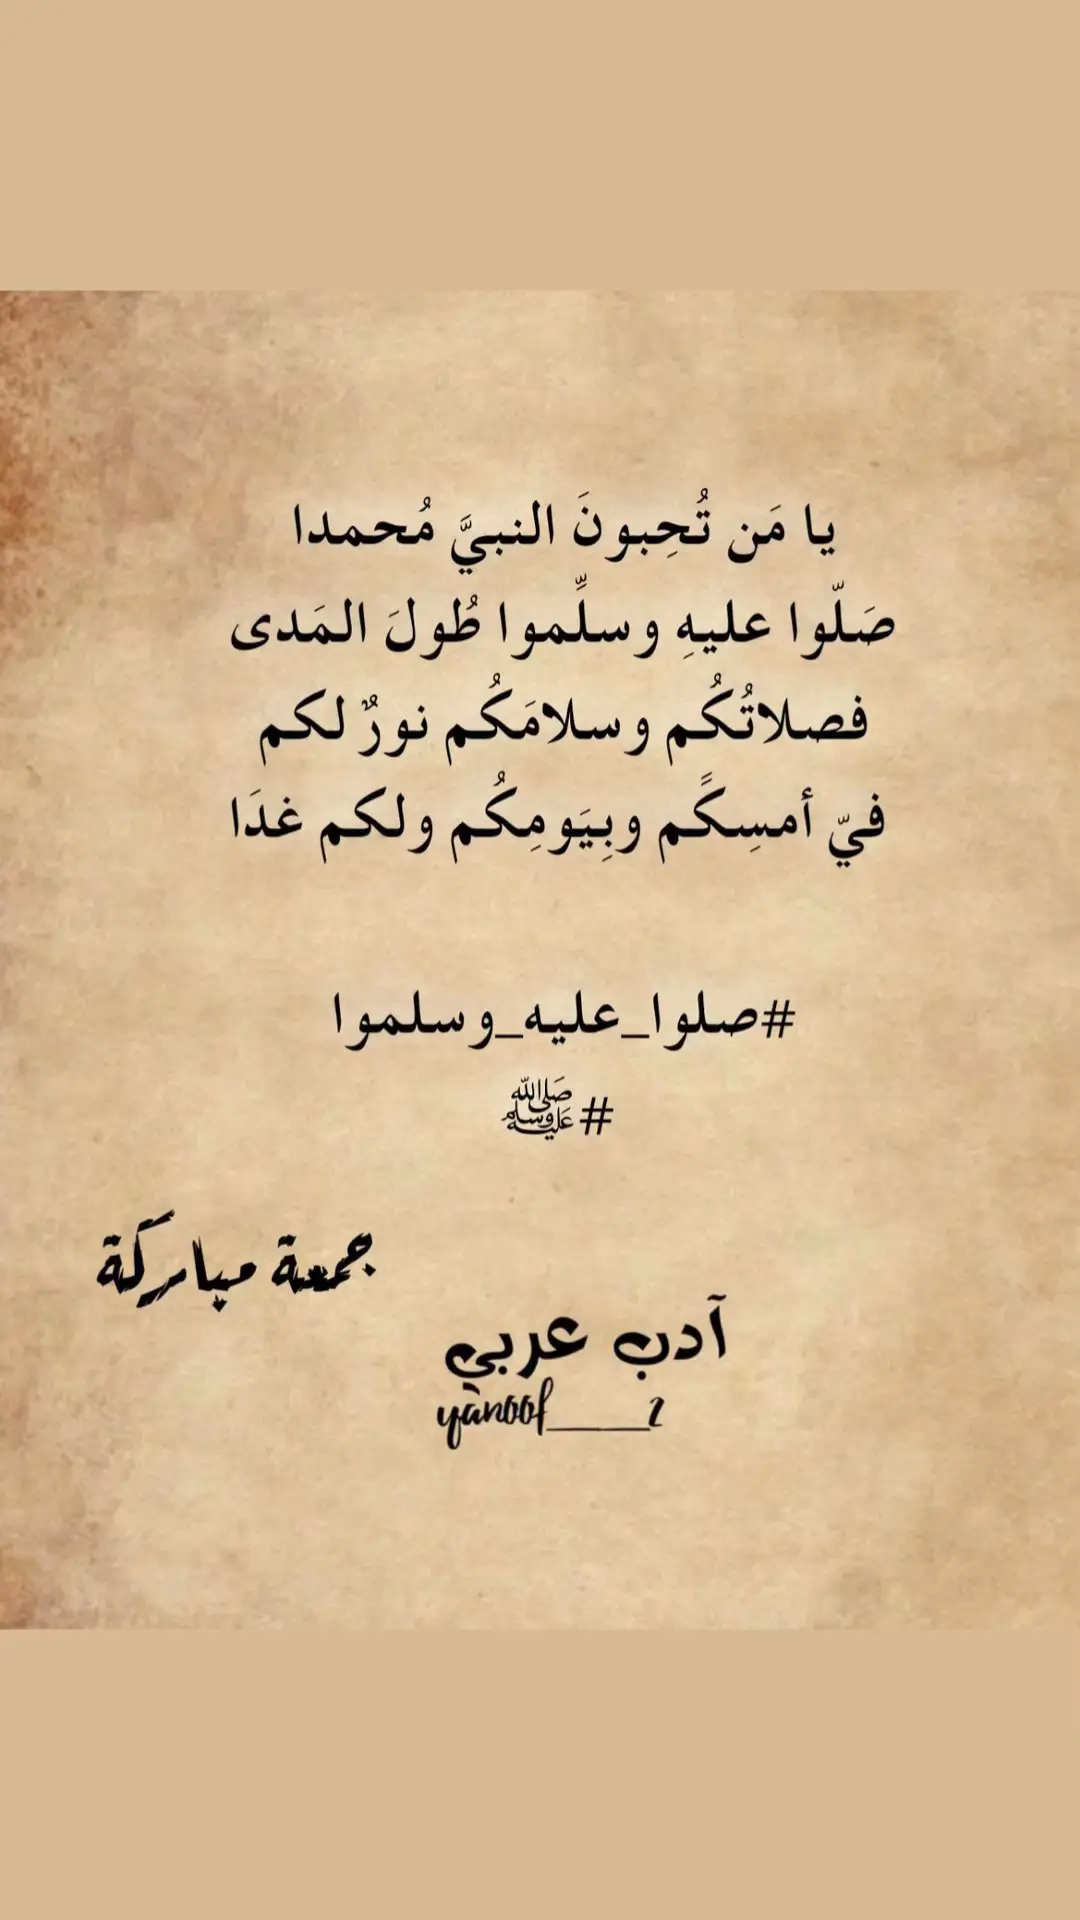 يا مَن تُحِبونَ النبيَّ مُحمدا
صَلّوا عليهِ وسلِّموا طُولَ المَدى
فصلاتُكُم وسلامَكُم نورٌ لكم
فيّ أمسِكًم وبِيَومِكُم ولكم غدَا
#صلوا_عليه_وسلموا
#ﷺ
جمعة مباركة
آدب عربي
yanoof____2